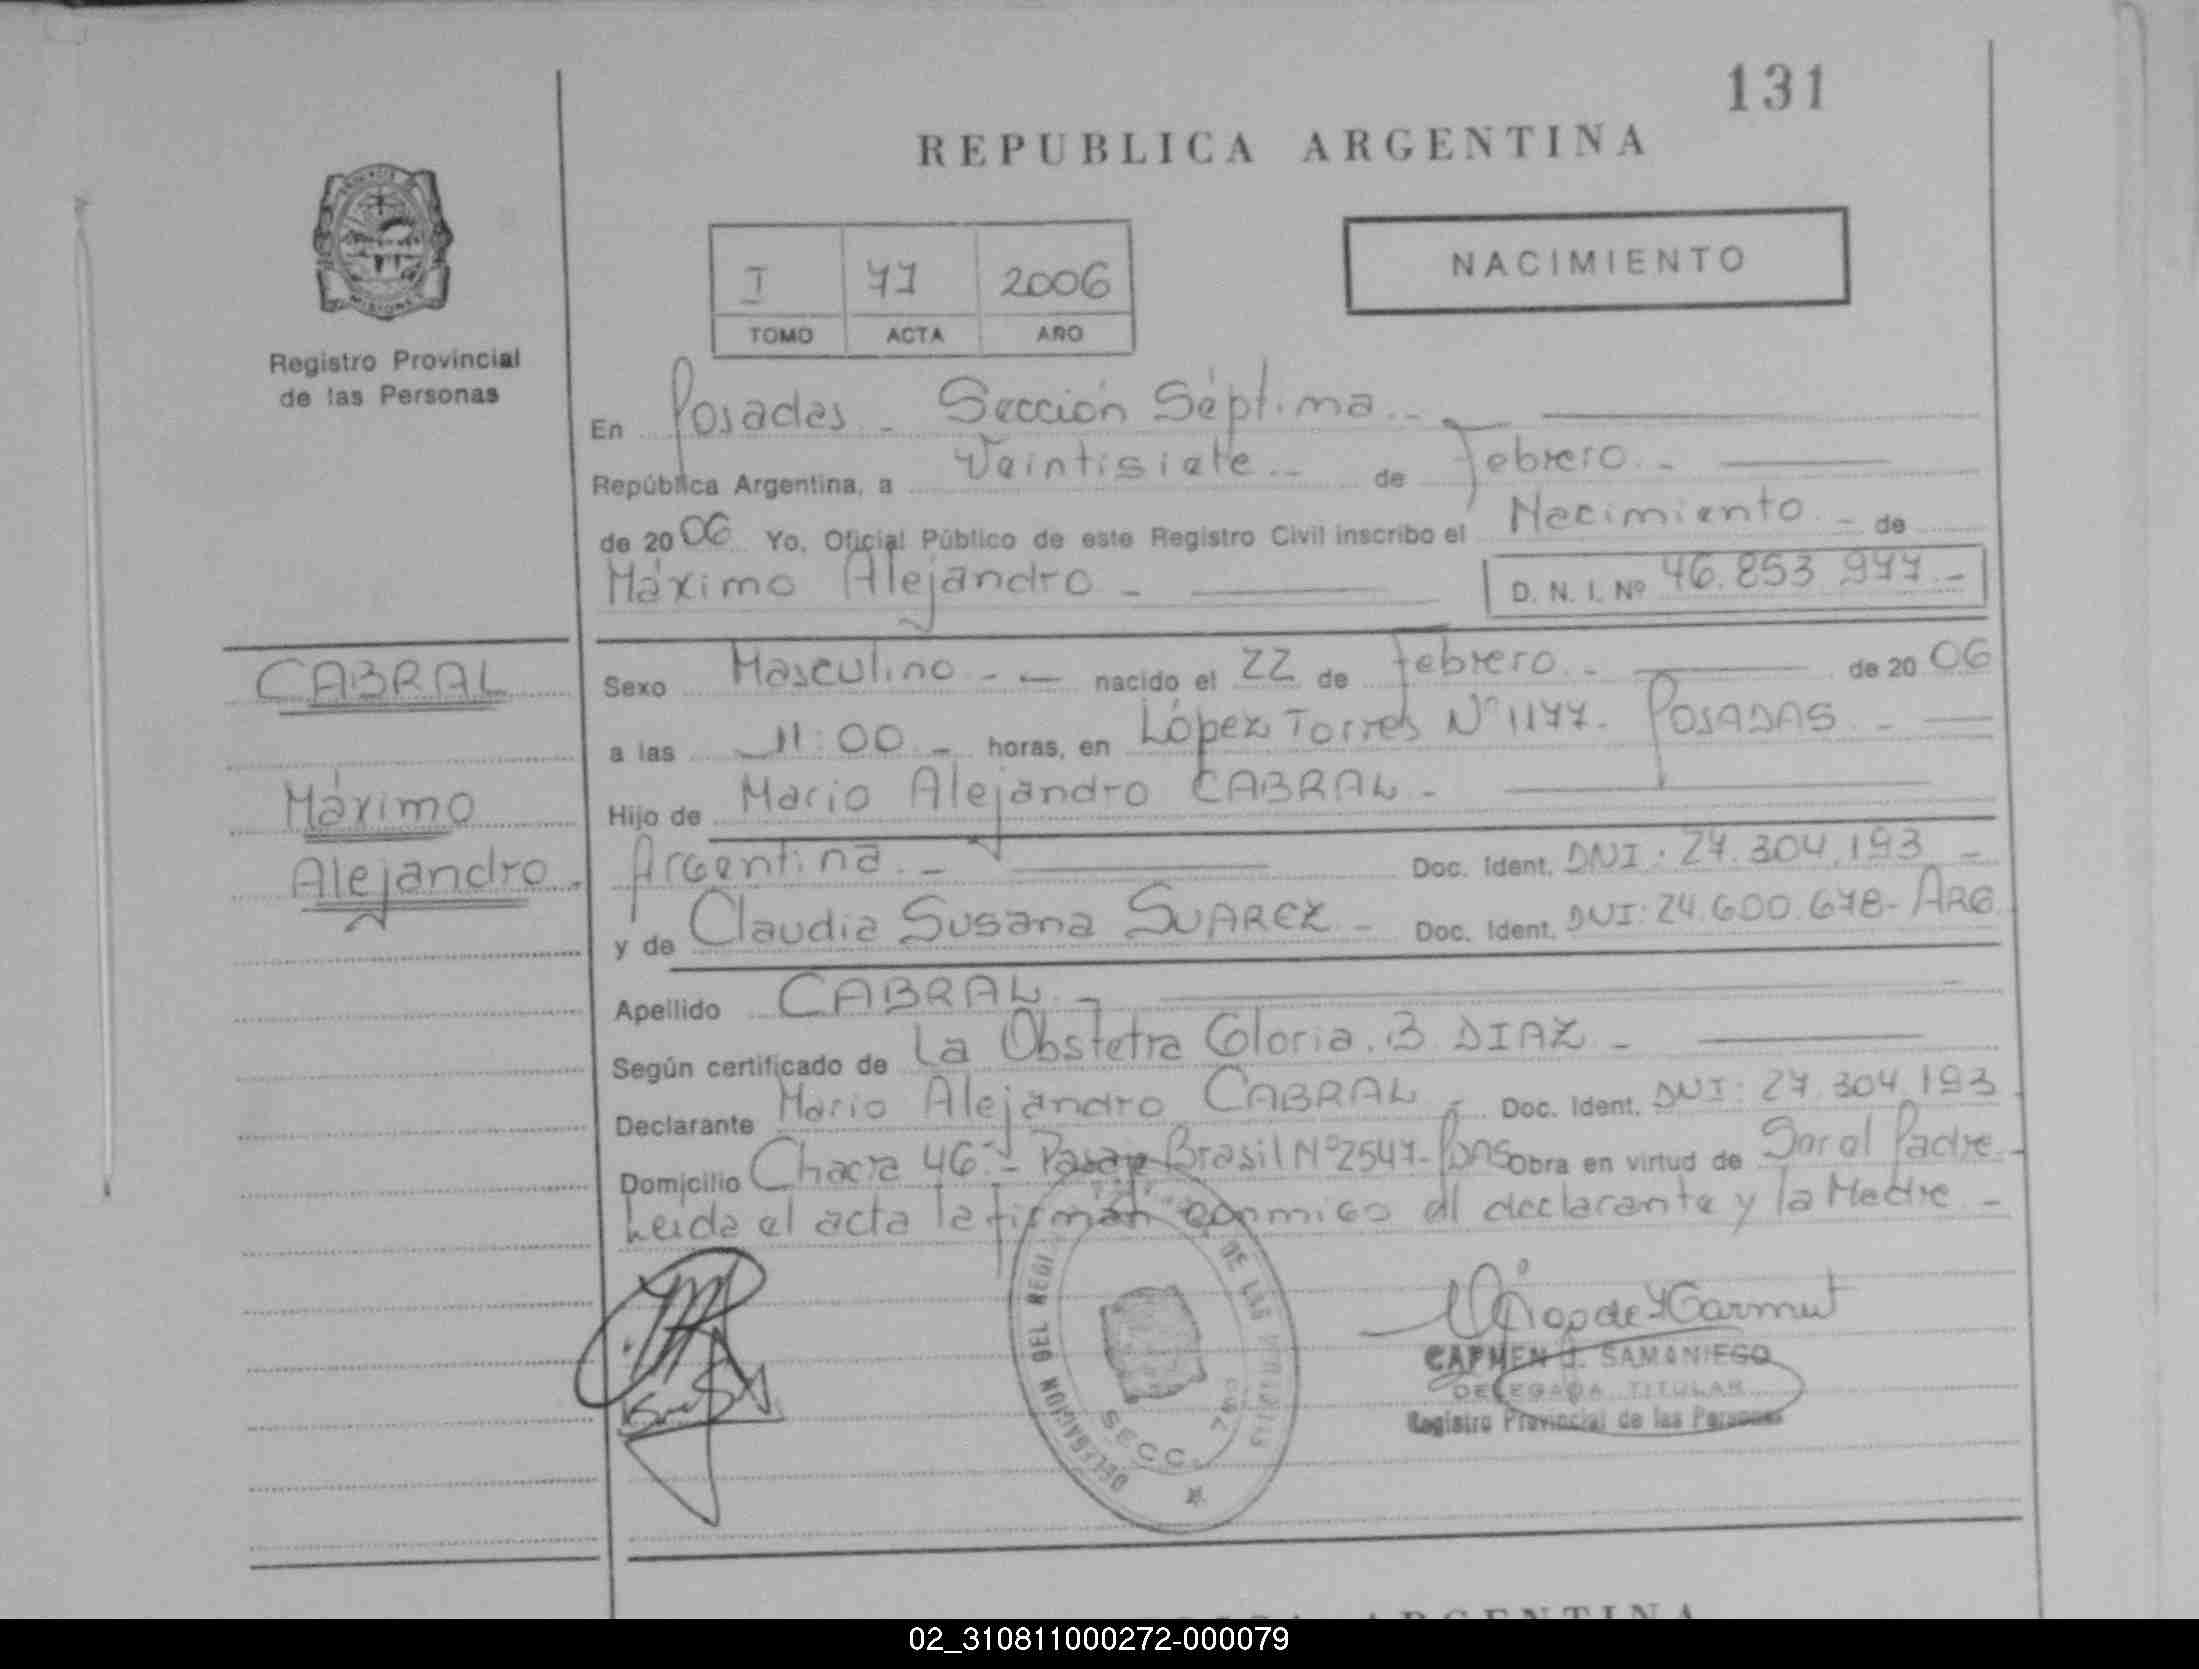 131
REPUBLICA ARGENTINA
NACIMIENTO
I 71 2006
TOMO ACTA AÑO
Registro Provincial
de las Personas
En Posadas - Sección Séptima.-
República Argentina, a Veintisiete.- de Febrero.-
de 2006 Yo, Oficial Público de este Registro Civil inscribo el Nacimiento - de
Máximo Alejandro - D. N. I. Nº 46.853.977.-
CABRAL
Máximo
Alejandro.
Sexo Masculino.- nacido el 22 de febrero.- de 2006
a las 11:00.- horas, en López Torres Nº 1177. POSADAS.-
Hijo de Mario Alejandro CABRAL.-
Argentina.- Doc. Ident. DNI: 27.304.193 -
y de Claudia Susana SUAREZ - Doc. Ident. DNI: 24.600.678- ARG.
Apellido CABRAL.-
Según certificado de La Obstetra Gloria. B. DIAZ -
Declarante Mario Alejandro CABRAL - Doc. Ident. DNI: 27.304.193
Domicilio Chacra 46.- Pasaje Brasil Nº2547- Pdas Obra en virtud de Ser el Padre.-
Leida el acta la firman conmigo el declarante y la Madre -
DELEGACION DEL REGI DE LAS
SECC. 7ma
CARMEN J. SAMANIEGO
DELEGADA TITULAR
Registro Provincial de las Personas
ARGENTINA
02_310811000272-000079